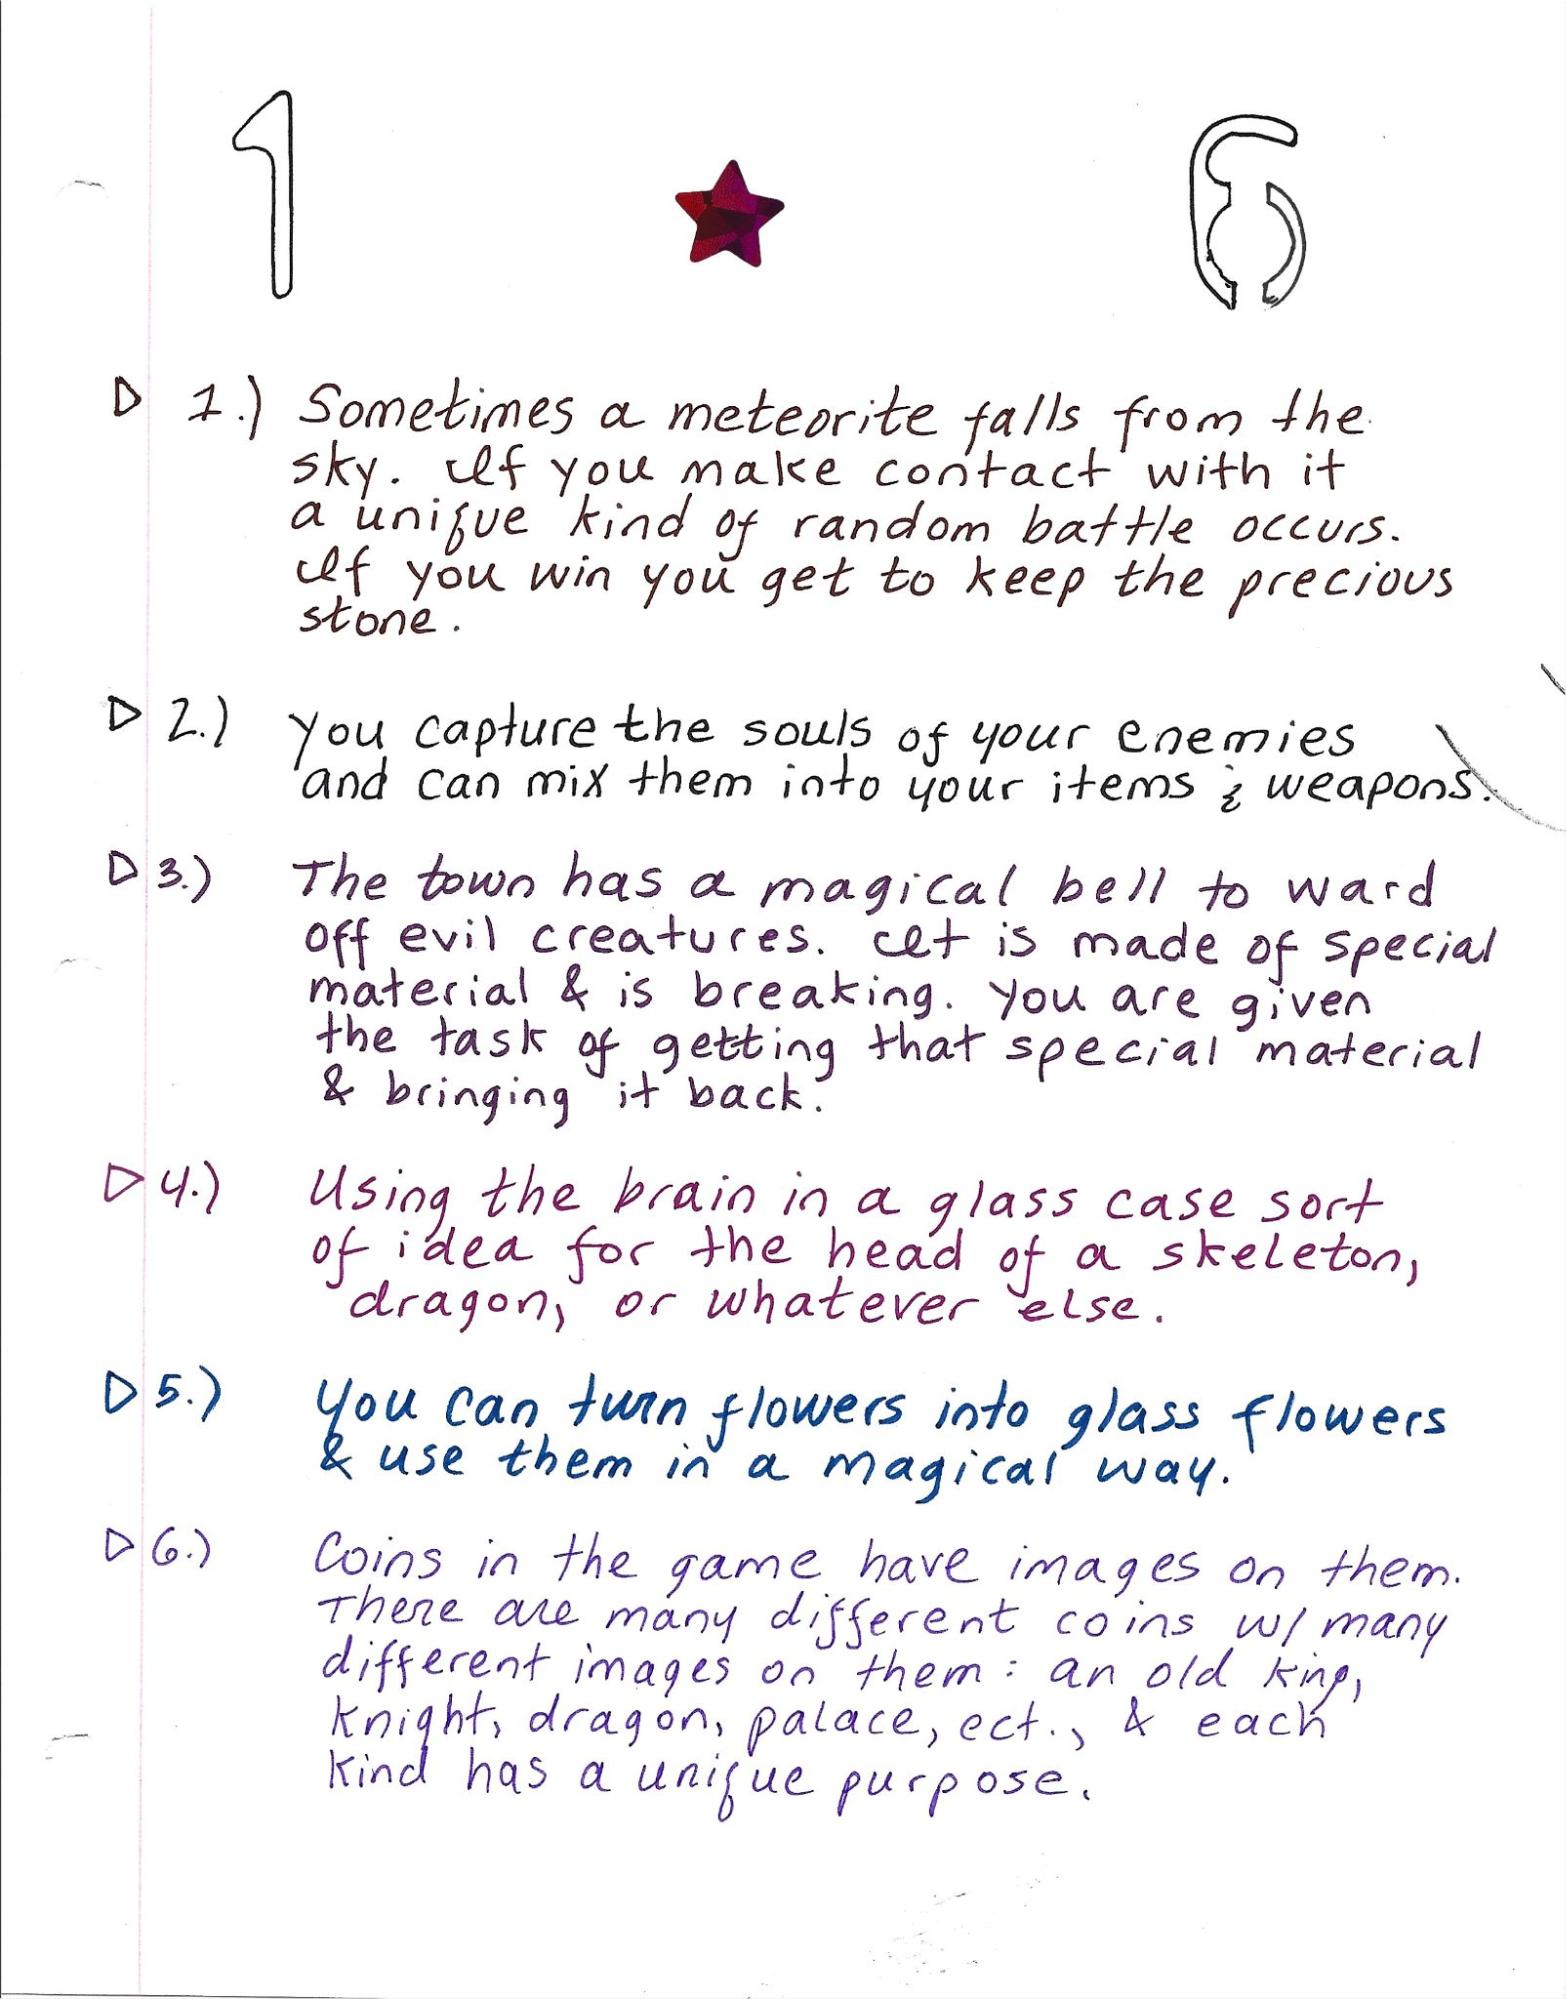 1 6
1.) Sometimes a meteorite falls from the
sky. If you make contact with it
a unique kind of random battle occurs.
If you win you get to keep the precious
stone.
2.) You capture the souls of your enemies
and can mix them into your items & weapons.
3.) The town has a magical bell to ward
off evil creatures. It is made of special
material & is breaking. You are given
the task of getting that special material
& bringing it back.
4.) Using the brain in a glass case sort
of idea for the head of a skeleton,
dragon, or whatever else.
5.) You can turn flowers into glass flowers
& use them in a magical way.
6.) Coins in the game have images on them.
There are many different coins w/ many
different images on them: an old king,
knight, dragon, palace, ect., & each
kind has a unique purpose.